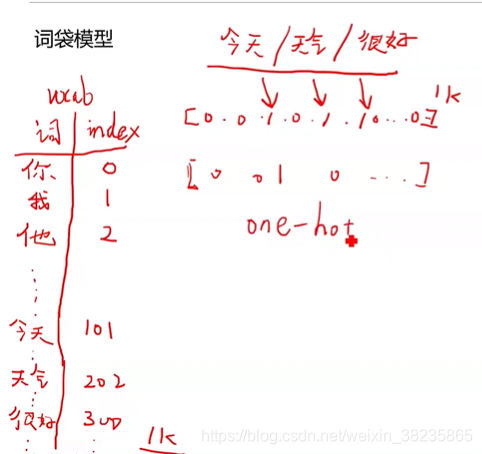 词袋模型
今天/天气/很好
vocab
词 index
你 0
我 1
他 2
今天 101
天气 202
很好 300
1k
[0 . 0 . 1 . 0 . 1 . 1 0 ... 0] 1k
[0 0 1 0 ...]
one-hot
https://blog.csdn.net/weixin_38235865